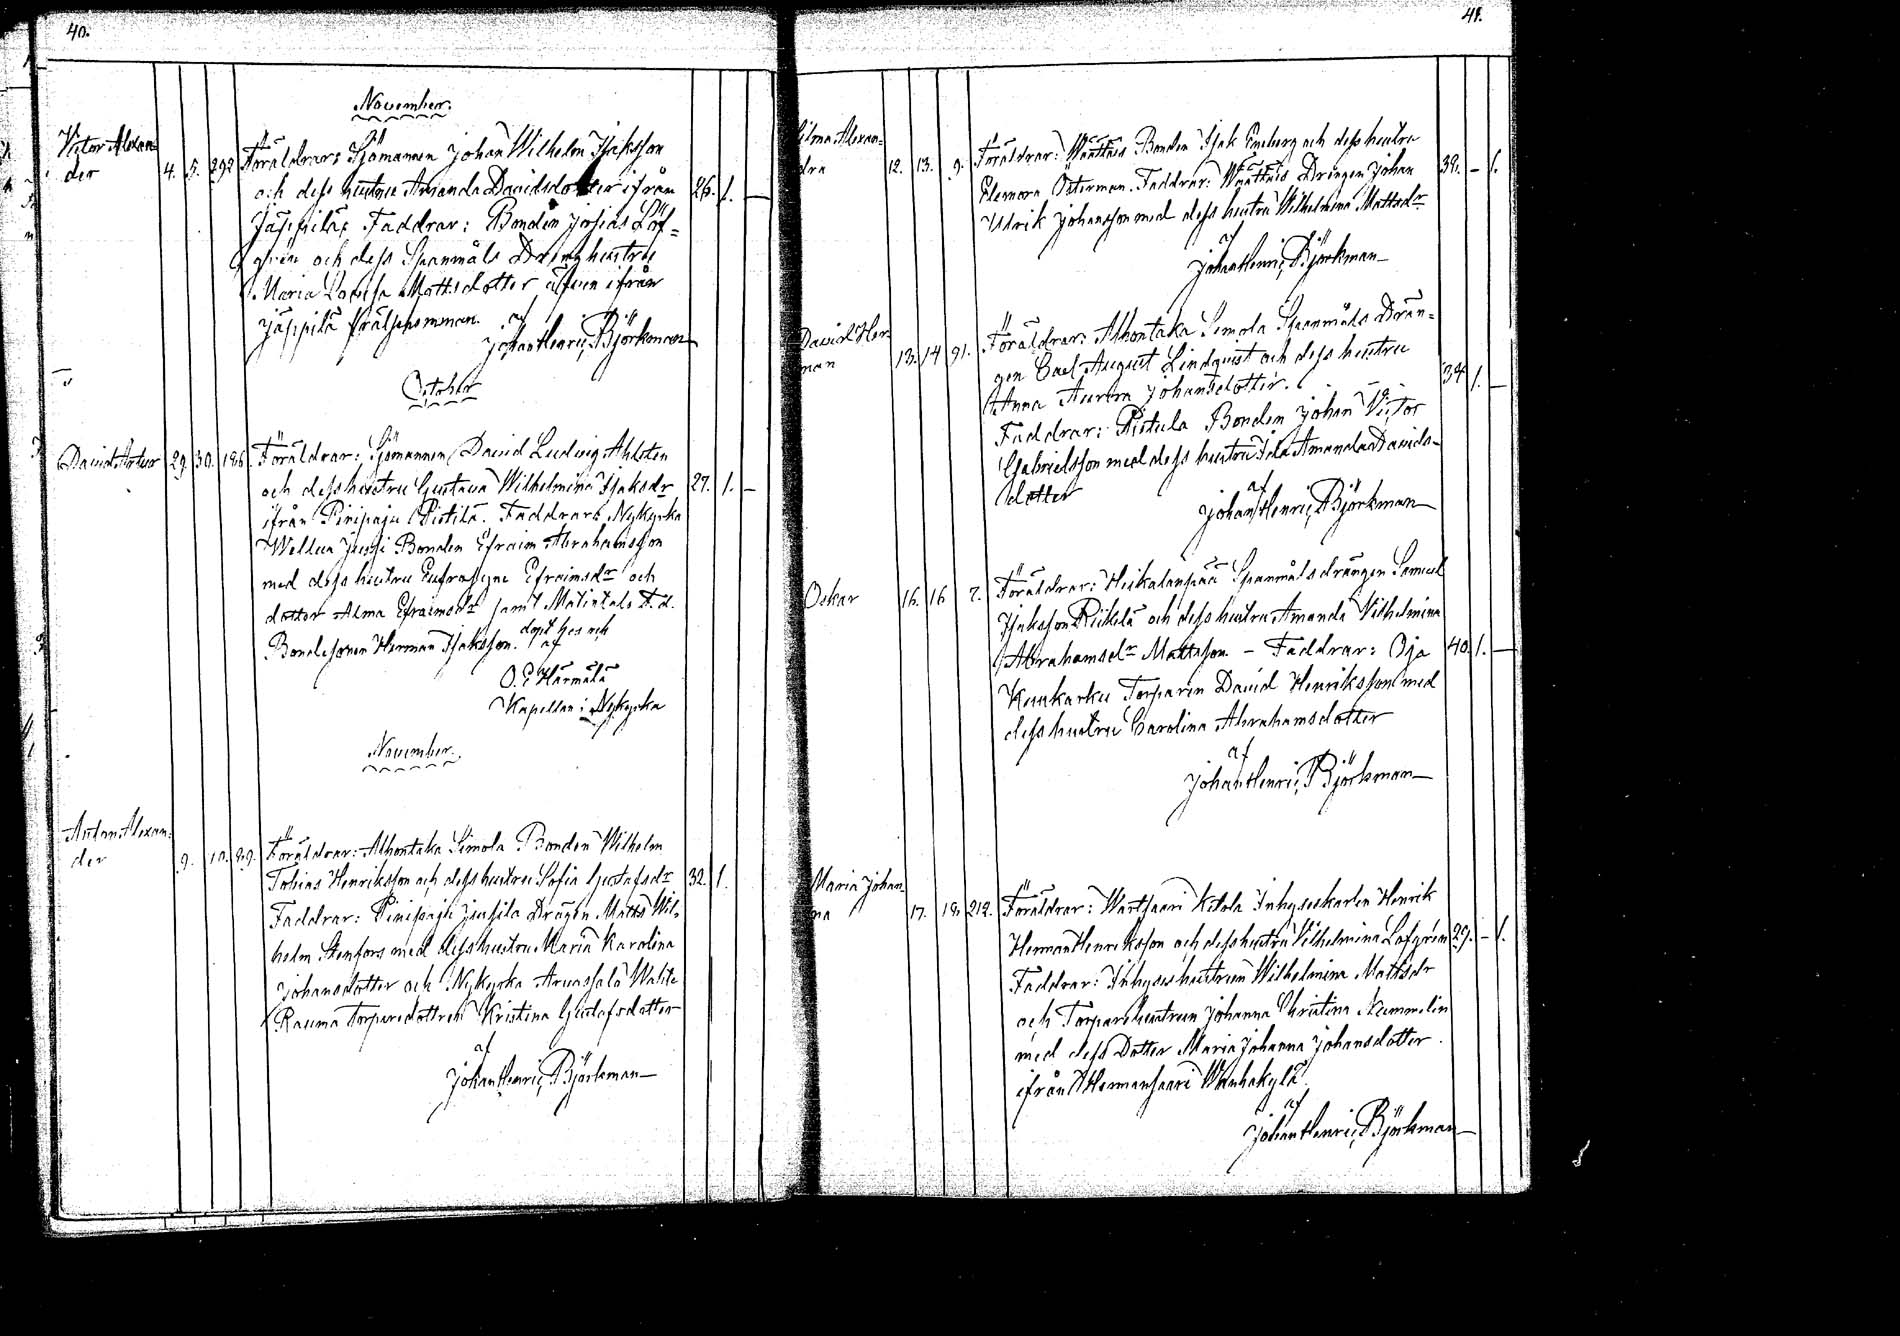 40.
November.
Victor Alexan=
der 4. 5. 292 Föräldrar: Sjömannen Johan Wilhelm Isaksson
och dess hustru Amanda Davidsdotter ifrån 26. 1. —
Jäppilä; Faddrar: Bonden Josias Löf=
gren och dess Spanmåls Dräng hustru
Maria Lovisa Mattsdotter äfven ifrån
Jäppilä frälsehemman. af
Johan Henric Björkman
October
David Artur 29. 30. 186. Föräldrar: Sjömannen David Ludvig Ahlsten
och dess hustru Gustava Wilhelmina Isaksdr 27. 1. —
ifrån Pinipaju Pistilä. Faddrar: Nykyrka
Jussi Bonden Efraim Abrahamsson
med dess hustru Eufrosyne Efraimsdr och
dotter Alma Efraimsdr samt F.d.
Bondesonen Herman Isaksson. döpt hos och
af
O. E. Härmälä
Kapellan i Nykyrka
November.
Anton Alexan=
der 9. 10. 89. Föräldrar: Alhontaka Simola Bonden Wilhelm
Tobias Henriksson och dess hustru Sofia Gustafsdr 32. 1.
Faddrar: Pinipaju Jussila Drägen Matts Wil=
helm Stenfors med dess hustru Maria Karolina
Johansdotter och Nykyrka
Rauma Torparedottren Kristina Gustafsdotter
af
Johan Henric Björkman
41.
Alexan=
dra 12. 13. 9. Föräldrar: Bonden Isak Eneberg och dess hustru
Eleonora Österman. Faddrar: Drängen Johan 39. – 1.
Ulrik Johansson med dess hustru Wilhelmina Mattsdr
af
Johan Henric Björkman
David Her=
man 13. 14 91. Föräldrar: Alhontaka Simola Spanmåls Drän=
gen Carl August Lindquist och dess hustru
Anna Aurora Johansdotter. 34 1. —
Faddrar: Pistula Bonden Johan Victor
Gabrielsson med dess hustru Ida Amanda Davids=
dotter af
Johan Henric Björkman
Oskar 16. 16 7. Föräldrar: Hiekalanpää Spanmålsdrängen Samuel
Isaksson Rikilä och dess hustru Amanda Vilhelmina
Abrahamsdr Mattsson. – Faddrar: Oja 40. 1. —
Kuukarku Torparen David Henriksson med
dess hustru Carolina Abrahamsdotter
af
Johan Henric Björkman
Maria Johan
na 17. 18. 212. Föräldrar: Wartsaari Kitola Inhyseskarlen Henrik
Herman Henriksson och dess hustru Vilhelmina Lofgrén 29. – 1.
Faddrar: Inhyses hustrun Wilhelmina Mattsdr
och Torparehustrun Johanna Christina Nummelin
med dess Dotter Maria Johanna Johansdotter.
ifrån Hermansaari Wanhakylä.
af
Johan Henric Björkman